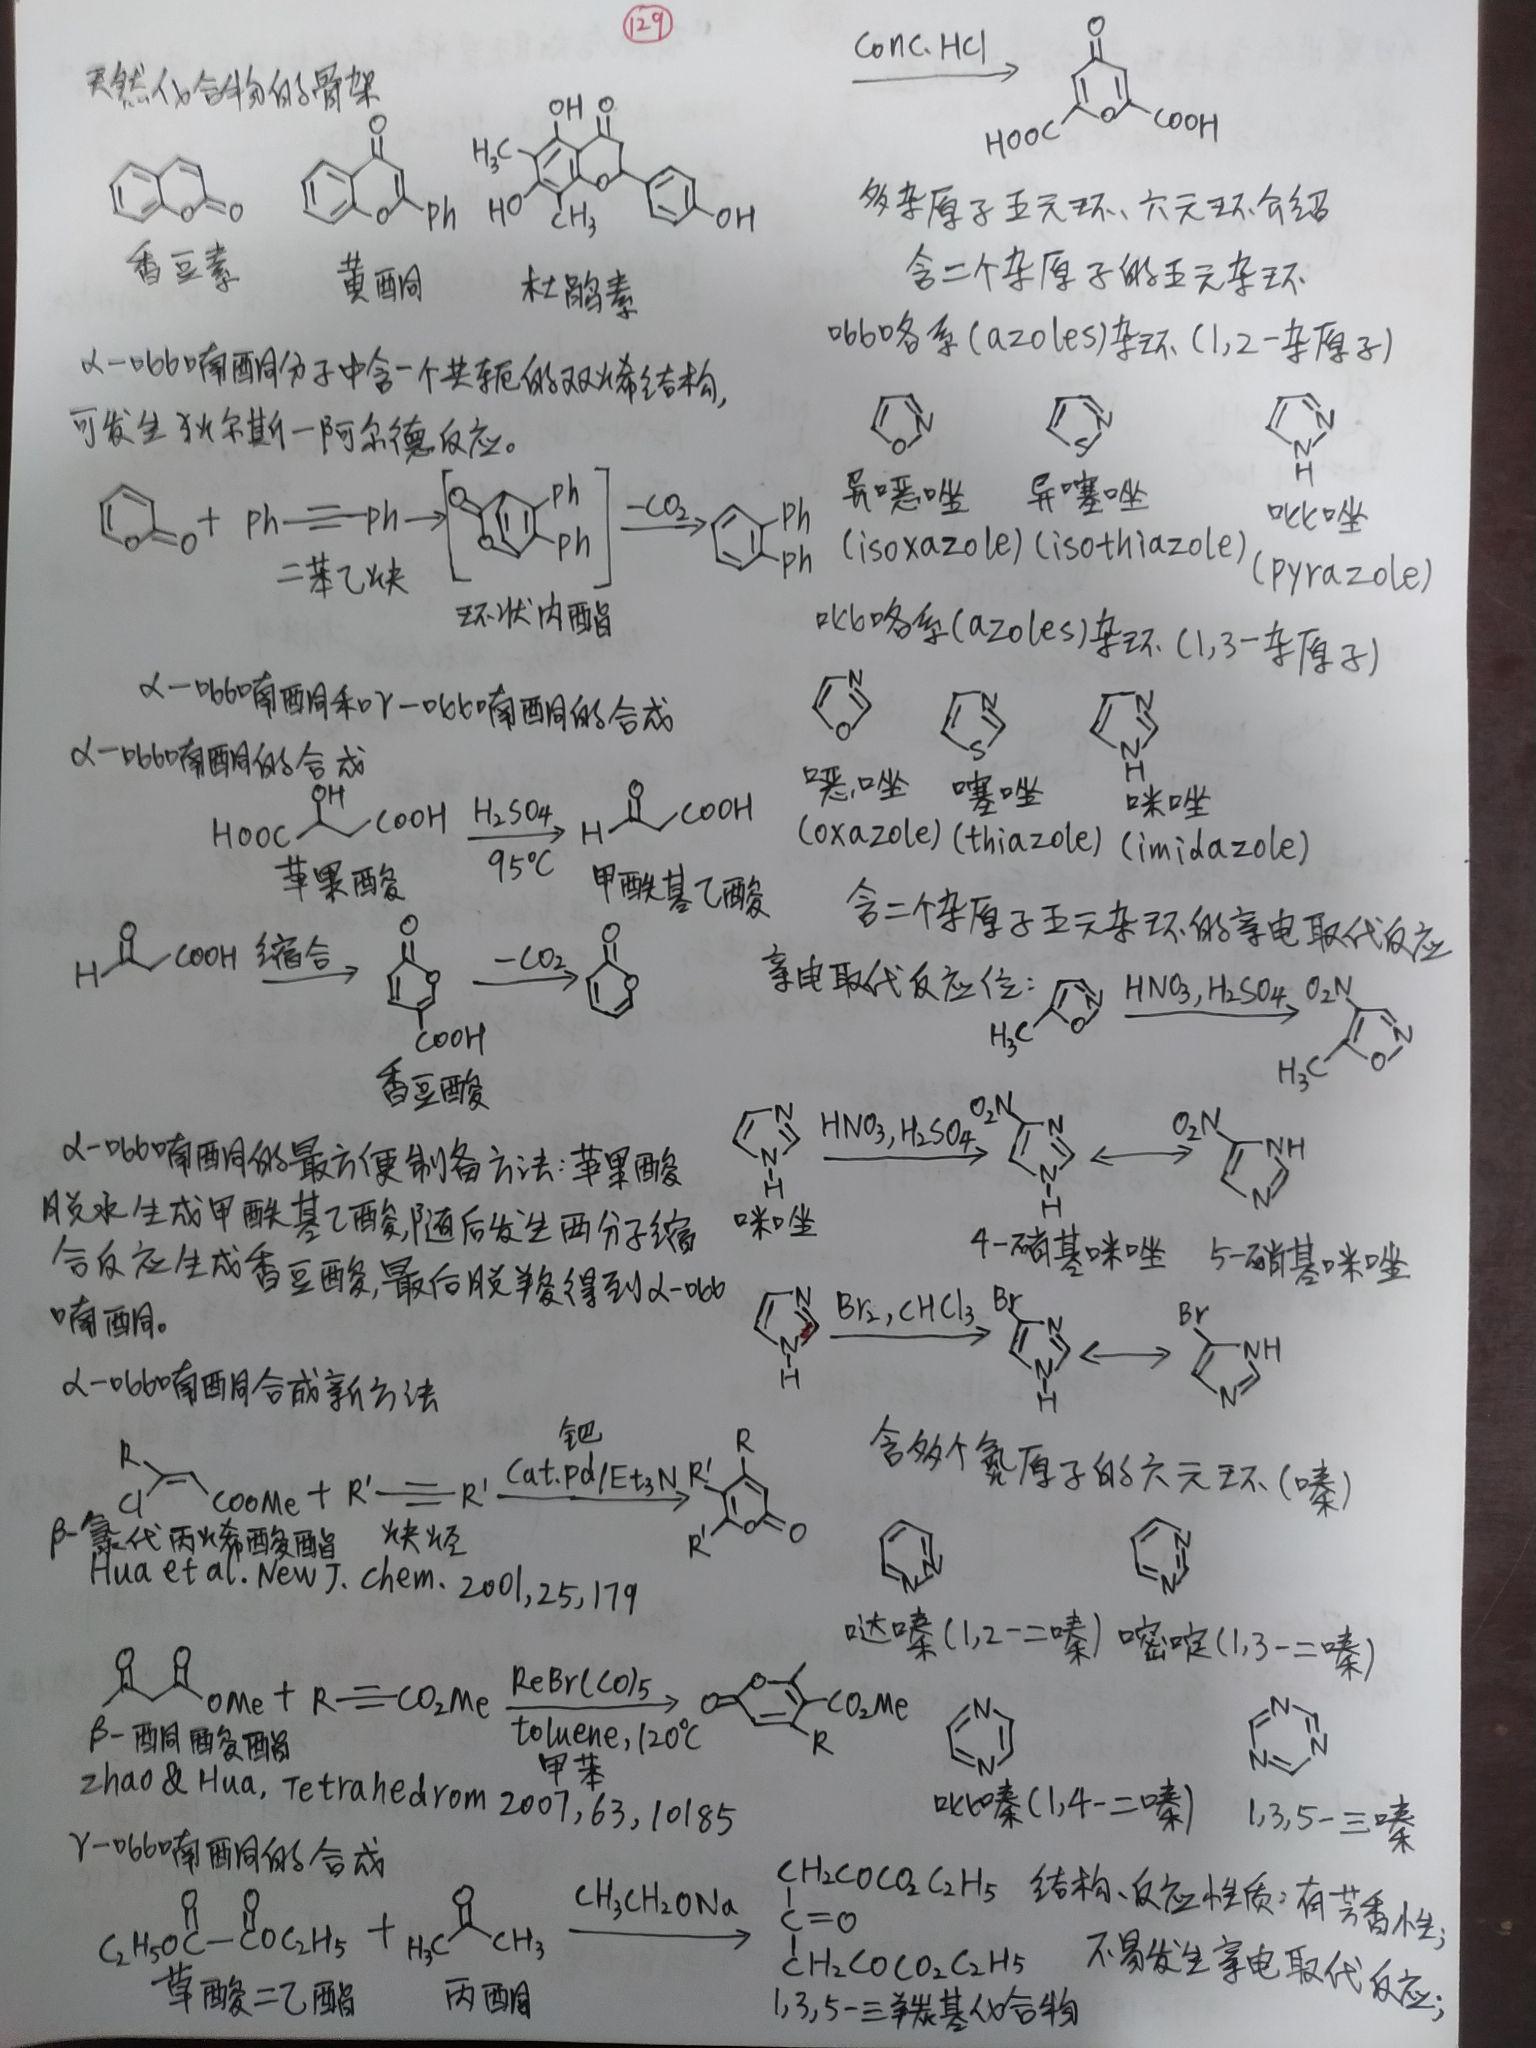 129
天然化合物的骨架
OH O
H3C
O
O O
O Ph
O
HO CH3
OH
香豆素 黄酮 杜鹃素
α-吡喃酮分子中含一个共轭的双烯结构,
可发生狄尔斯-阿尔德反应。
O O + Ph Ph → [ O O Ph Ph ] -CO2 Ph Ph
二苯乙炔
环状内酯
α-吡喃酮和γ-吡喃酮的合成
α-吡喃酮的合成
HOOC OH COOH H2SO4 95℃ H O COOH
苹果酸 甲酰基乙酸
H O COOH 缩合 O O COOH -CO2 O O
香豆酸
α-吡喃酮的最方便制备方法:苹果酸
脱水生成甲酰基乙酸,随后发生两分子缩
合反应生成香豆酸,最后脱羧得到α-吡
喃酮。
α-吡喃酮合成新方法
钯
R Cl COOMe + R' R' Cat.Pd/Et3N R R' R' O O
β-氯代丙烯酸酯 炔烃
Hua et al. New J. Chem. 2001,25,179
O O OMe + R CO2Me ReBr(CO)5 toluene,120℃ O O CO2Me R
β-酮酸酯 甲苯
Zhao & Hua, Tetrahedrom 2007,63,10185
γ-吡喃酮的合成
C2H5OC-COC2H5 O O + H3C O CH3 CH3CH2ONa
CH2COCO2C2H5
C=O
CH2COCO2C2H5
草酸二乙酯 丙酮 1,3,5-三羰基化合物
Conc.HCl O HOOC O COOH
多杂原子五元环、六元环介绍
含二个杂原子的五元杂环
吡咯系(azoles)杂环(1,2-杂原子)
O N S N N N H
异噁唑 异噻唑 吡唑
(isoxazole) (isothiazole) (pyrazole)
吡咯系(azoles)杂环(1,3-杂原子)
N O N S N N H
噁唑 噻唑 咪唑
(oxazole) (thiazole) (imidazole)
含二个杂原子五元杂环的亲电取代反应
亲电取代反应位: H3C O N HNO3,H2SO4 O2N H3C O N
N N H HNO3,H2SO4 O2N N N H O2N NH N
咪唑 4-硝基咪唑 5-硝基咪唑
N N H Br2,CHCl3 Br N N H Br NH N
含多个氮原子的六元环(嗪)
N N N N
哒嗪(1,2-二嗪) 嘧啶(1,3-二嗪)
N N N N N
吡嗪(1,4-二嗪) 1,3,5-三嗪
结构、反应性质:有芳香性;
不易发生亲电取代反应;